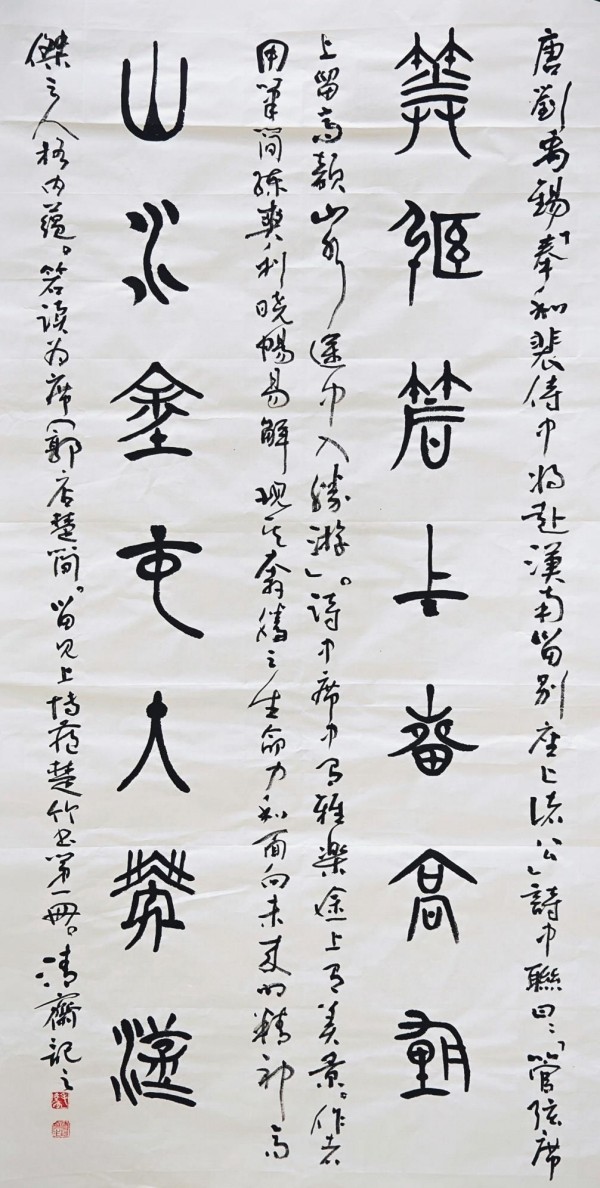 唐劉禹錫「奉和裴侍中將赴漢南留別座上諸公」詩中聯曰：「管弦席
筦弦箬上留高韻
上留高韻山水途中入勝游」。詩中席中有雅樂途上有美景。作者
用筆簡練爽利曉暢易解現其奔騰之生命力和面向未來的精神高
山水途中入勝遊
傑之人格內蘊。箬讀為席（郭店楚簡）。留見上博藏楚竹书第一冊。清齋記之